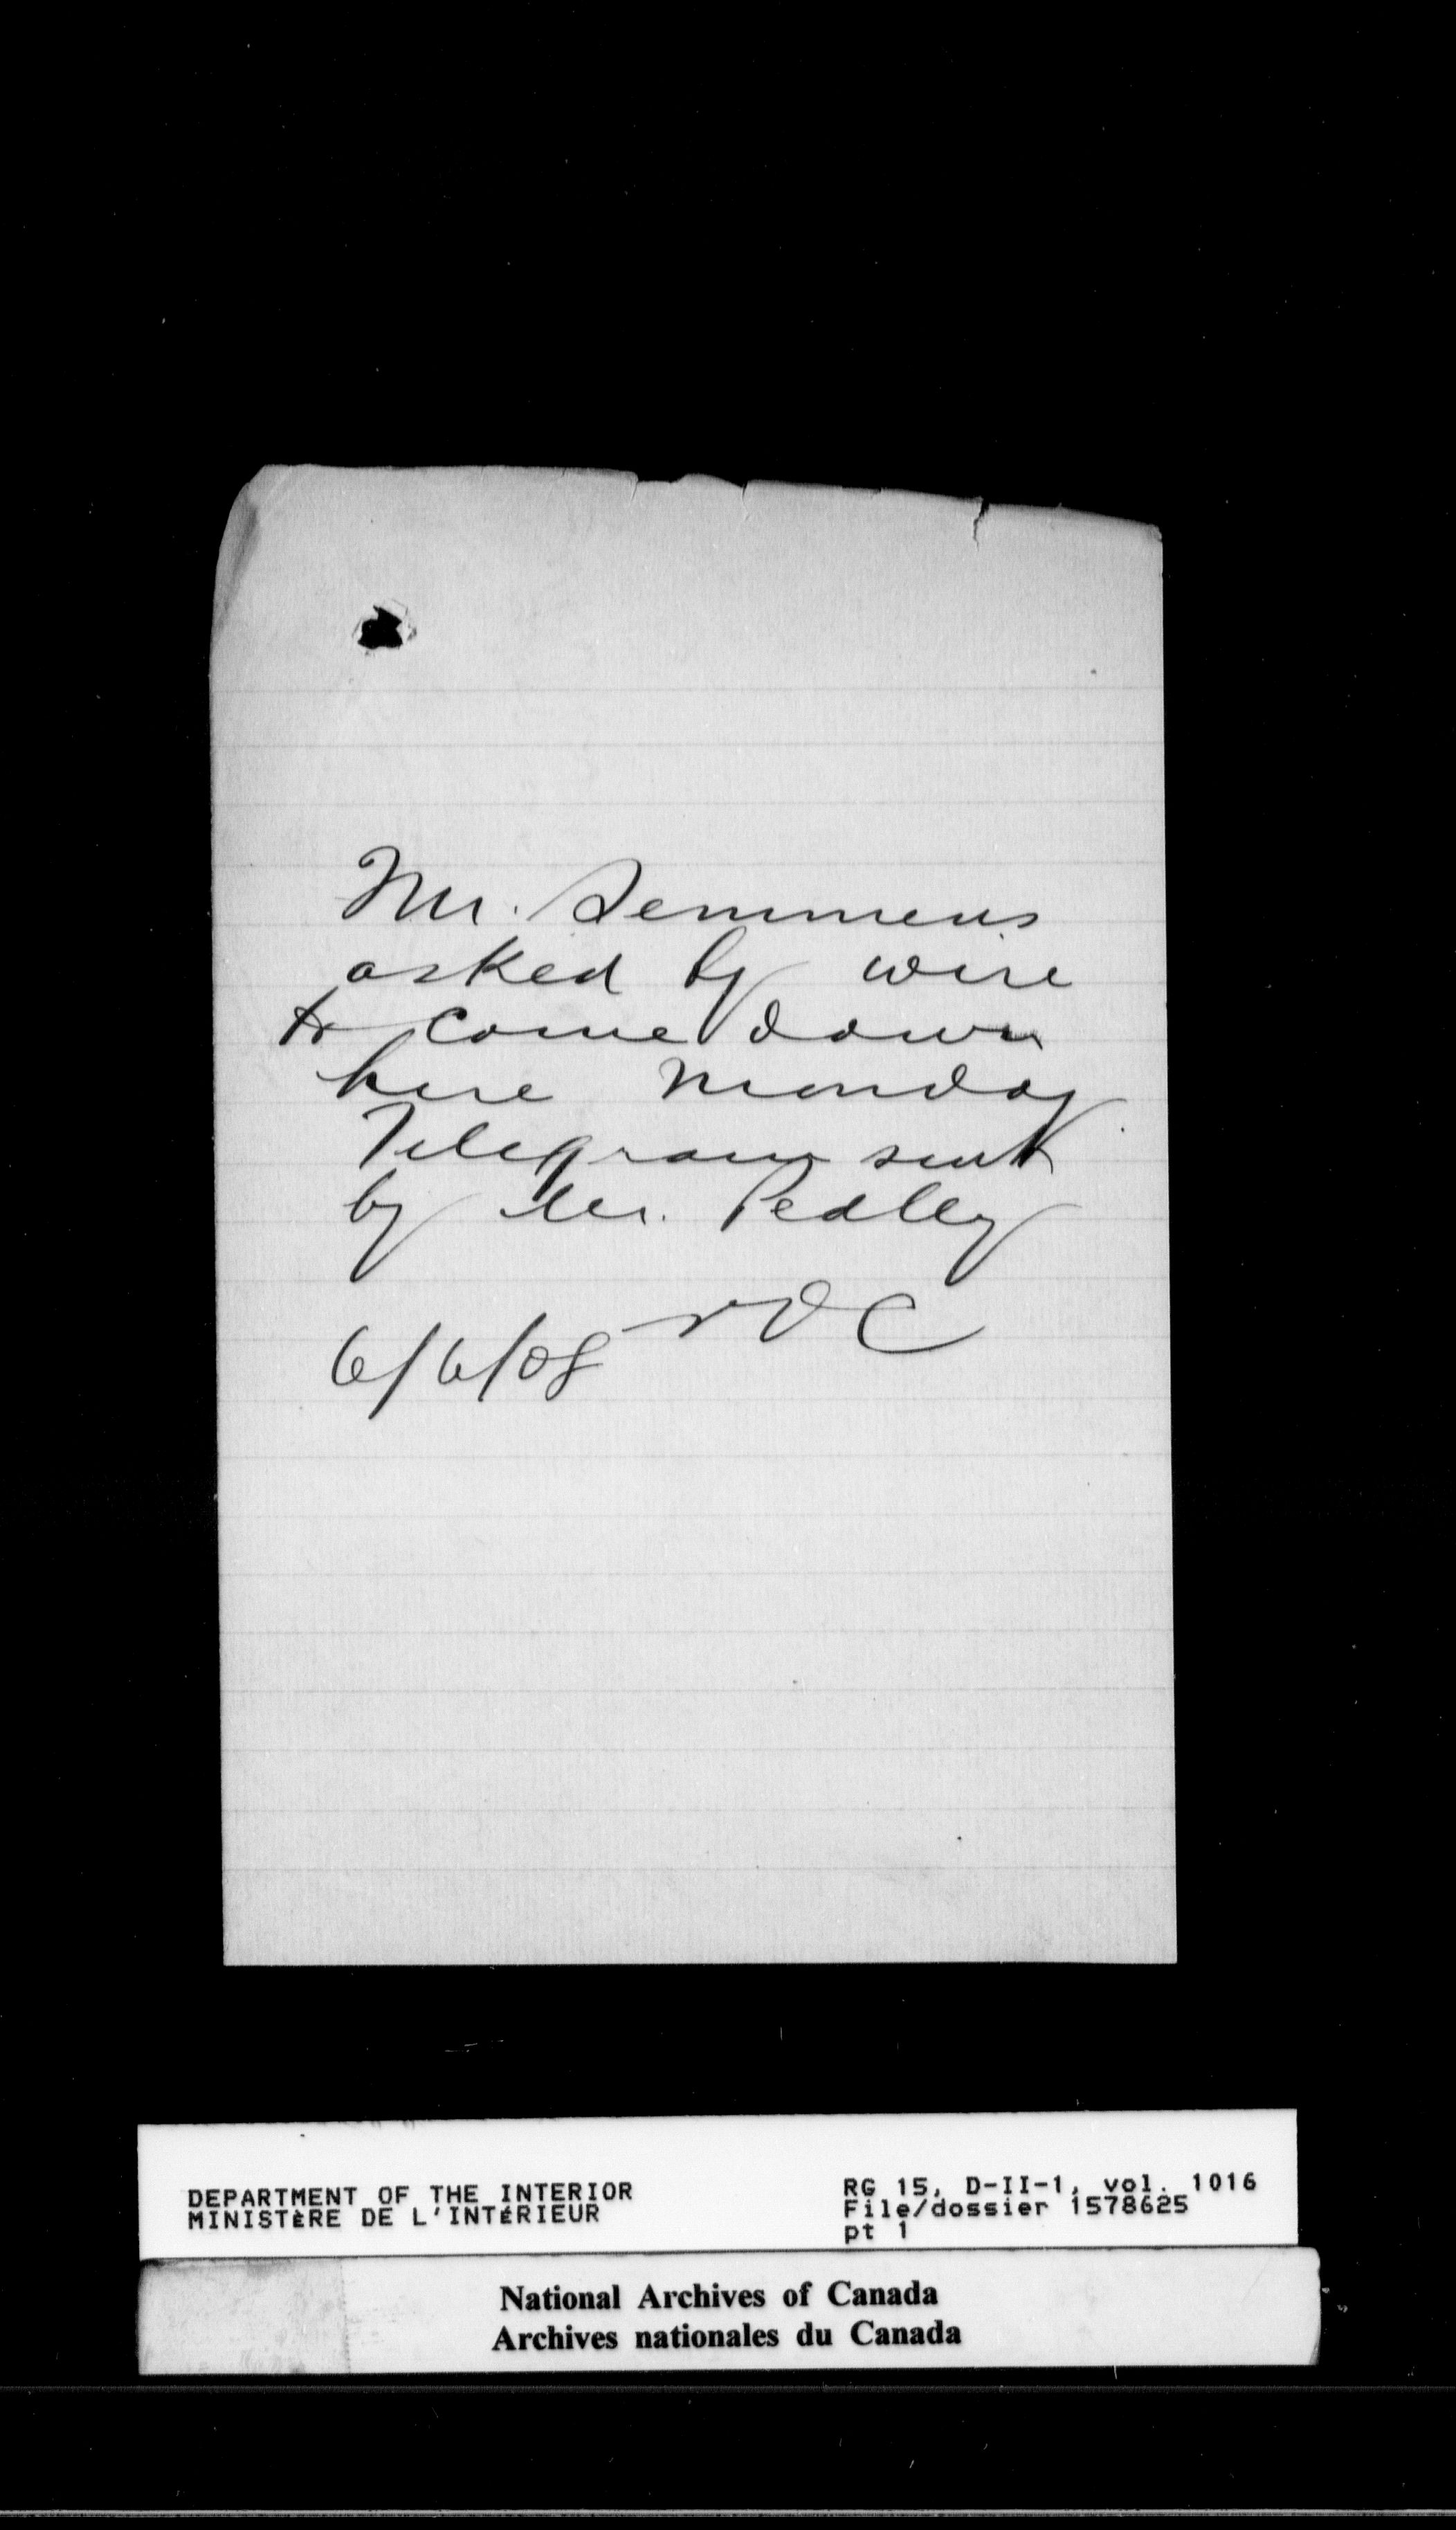 Mr. Semmens
asked by wire
to come down
here Monday
Telegram sent
by Mr. Pedley
6/6/08
DEPARTMENT OF THE INTERIOR
MINISTÈRE DE L'INTÉRIEUR
RG 15, D-II-1, vol. 1016
File/dossier 1578625
pt 1
National Archives of Canada
Archives nationales du Canada